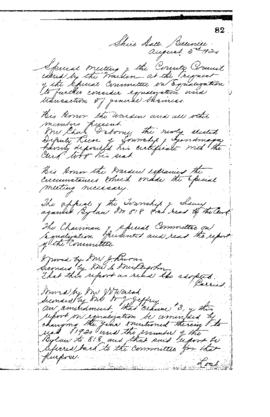 82
Shire Hall Belleville
August 5th 1920
Special meeting of the County Council
called by the Warden at the request
of the Special Committee on Equalization
to further consider equalization and
transaction of general business
His Honor the Warden and all other
members present
Mr the newly elected
Deputy Reeve of Township of
having deposited his certificate with the
Clerk took his seat
His Honor the Warden explained the
circumstances which made the Special
meeting necessary
The appeal of the Township of
against Bylaw No 818 was read by the Clerk
The Chairman of Special Committee on
Equalization presented and read the report
of the Committee
Moved by Mr
Seconded by Mr
That this report as read be adopted.
Carried
Moved by Mr
Seconded by Mr Jeffrey
an amendment that clause 3 of the
report on equalization be amended by
changing the year mentioned therein to
read 1920 and the number of the
Bylaw to 818 and that said report be
referred back to the committee for that
purpose.
Lost